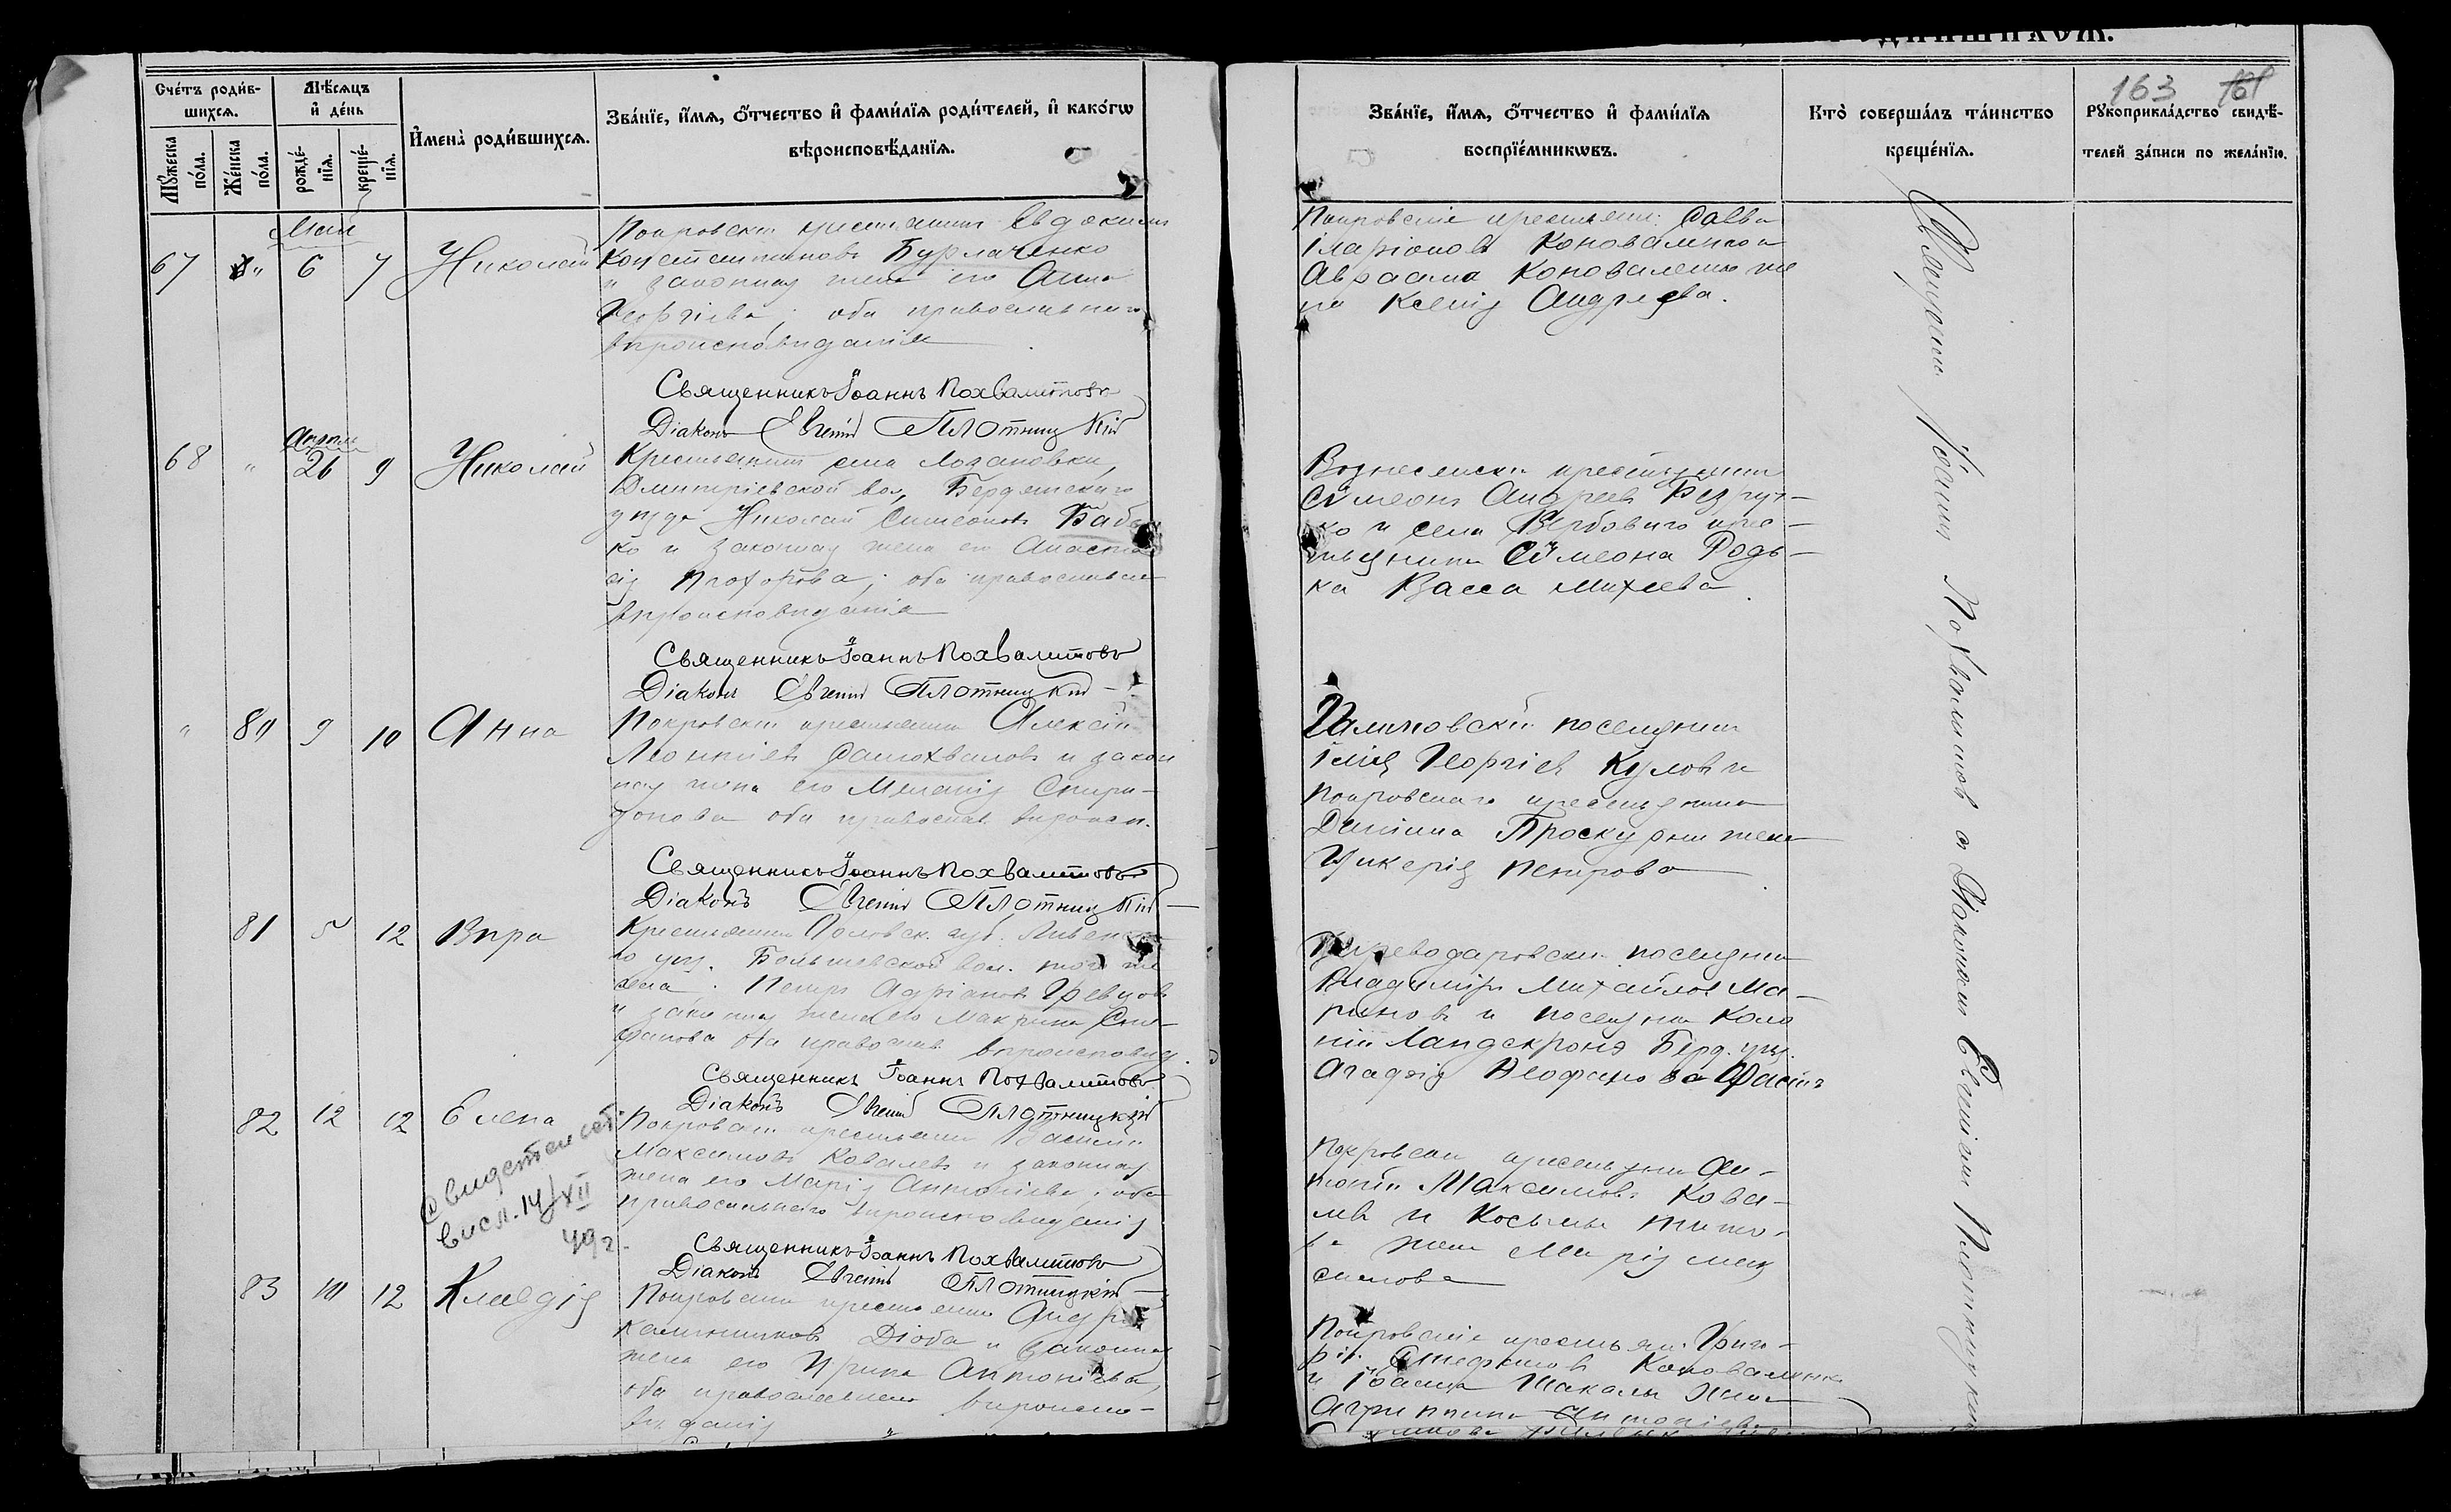 Счетъ родив-
шихся.
Мѣсяцъ
и день
Мужеска
пола.
Женска
пола.
рожде-
нїя.
креще-
нїя.
Имена родившихся.
Званїе, имя, отчество и фамилїя родителей, и какогω
вѣроисповѣданїя.
Май
67 " 6 7 Николай
Покровскій крестьянинъ Евдокимъ
Константиновъ Бурлаченко
и законная жена его Анна
Георгіева; оба православнаго
вѣроисповѣданія
Священникъ Іоаннъ Похвалитовъ
Діаконъ Евгеній Плотницкій
Апрѣль
68 " 26 9 Николай
Крестьянинъ села Лозановки,
Дмитріевской вол, Бердянскаго
уѣзда Николай Симеоновъ Баб
ко и законная жена его Анаста
сія Прохорова; оба православнаго
вѣроисповѣданія
Священникъ Іоаннъ Похвалитовъ
Діаконъ Евгеній Плотницкій
" 80 9 10 Анна
Покровскій крестьянинъ Алексій
Леонтіевъ Самохваловъ и закон
ная жена его Меланія Спири-
донова оба православ. вѣроисп.
Священникъ Іоаннъ Похвалитовъ
Діаконъ Евгеній Плотницкій
81 5 12 Вѣра
Крестьянинъ Орловск. губ. Ливенска
го уѣз. вол. того же
села Петръ Адріановъ Гревцовъ
и законная жена его Макрина Сте-
фанова оба православ. вѣроисповѣд.
Священникъ Іоаннъ Похвалитовъ
Діаконъ Евгеній Плотницкій
82 12 12 Елена
Свидетельст.
высл. 14/XII
49 г.
Покровскій крестьянинъ Василій
Максимовъ Ковалевъ и законная
жена его Марія Антоніева; оба
православнаго вѣроисповѣданія
Священникъ Іоаннъ Похвалитовъ
Діаконъ Евгеній Плотницкій
83 10 12 Клавдія
Покровскій крестьянинъ Андрей
Каллиниковъ Діоба и законная
жена его Ирина Антоніева,
оба православнаго вѣроиспо-
вѣданія
163
Званїе, имя, отчество и фамилїя
воспрїемникωвъ.
Кто совершалъ таинство
крещенїя.
Рукоприкладство свидѣ-
телей записи по желанїю.
Покровскіе крестьяни: Савва
Иларіоновъ Коноваленко и
Авраама Коноваленко же
на Ксенія Андреева.
Вознесенскій крестьянинъ
Сѵмеонъ Андреевъ Безруч-
ко и села Вербоваго крес-
тьянина Сѵмеона Редь-
ка Васса Михеева
поселянинъ
Илія Георгіевъ Куловъ и
Покровскаго крестьянина
Даніила Проскурни жена
Гликерія Петрова
поселянинъ
Владиміръ Михайловъ Ма-
риновъ и поселянка коло
ніи Ландскроне Берд. уѣз.
Агафія Неофанова
Покровскій крестьянинъ Ан-
тоній Максимовъ Кова-
левъ и Косьмы Тито-
ва жена Марія Мак
симова
Покровскіе крестьяни: Григо-
рій Стефановъ Коноваленко
и Іоанна Шакалы жена
Агриппина Антоніева
Священникъ Іоаннъ Похвалитовъ съ Діакономъ Евгеніемъ Плотницкимъ